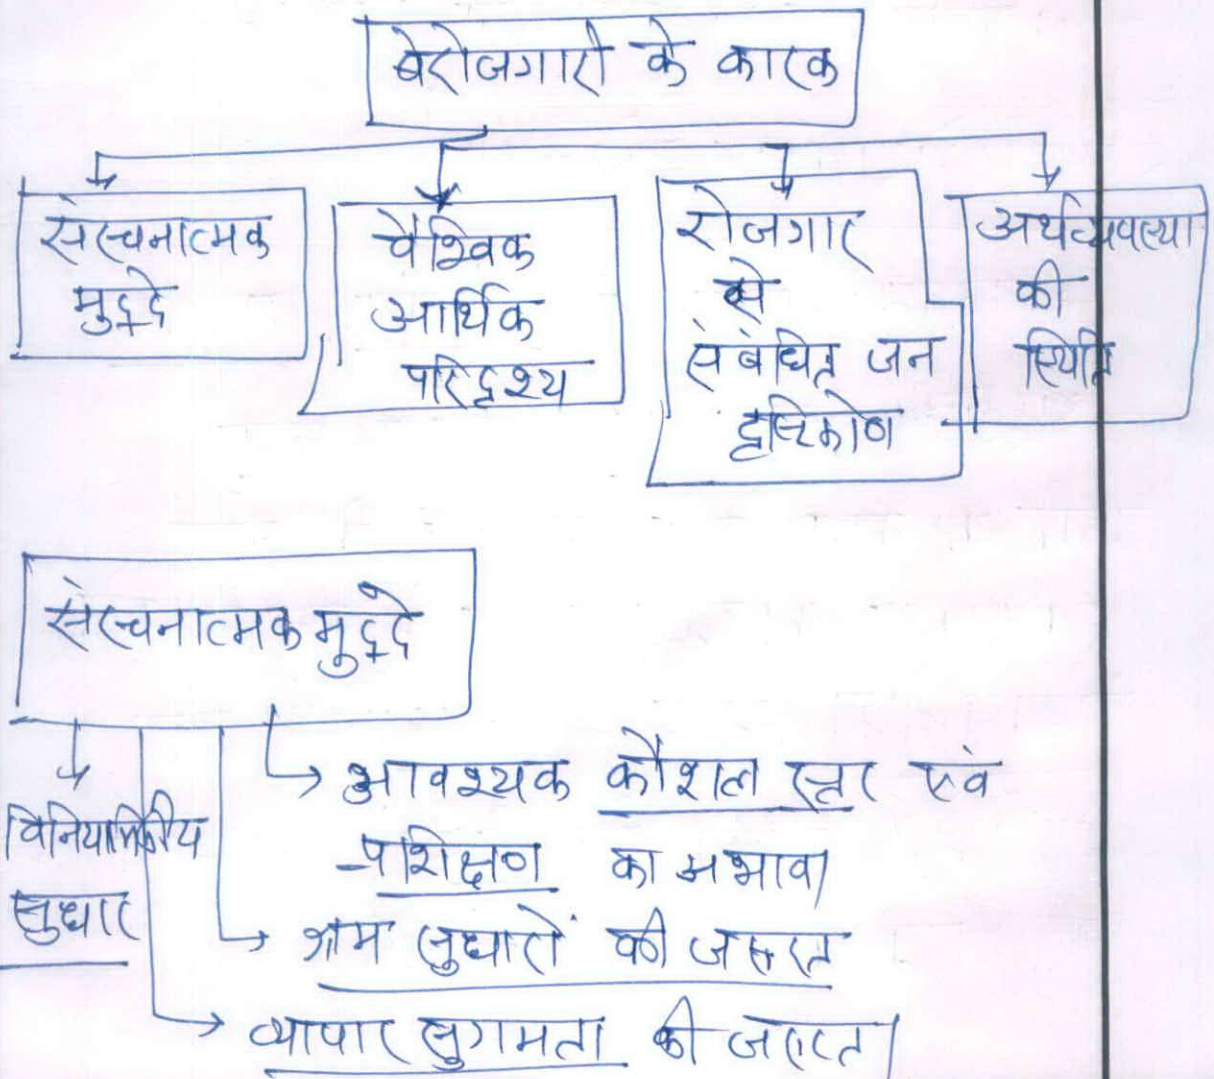 बेरोजगारी के कारक
संरचनात्मक
मुद्दे
वैश्विक
आर्थिक
परिदृश्य
रोजगार
से
संबंधित जन
दृष्टिकोण
अर्थव्यवस्था
की
स्थिति
संरचनात्मक मुद्दे
विनियामकीय
सुधार
आवश्यक कौशल स्तर एवं
प्रशिक्षण का अभाव।
श्रम सुधारों की जरूरत
व्यापार सुगमता की जरूरत।